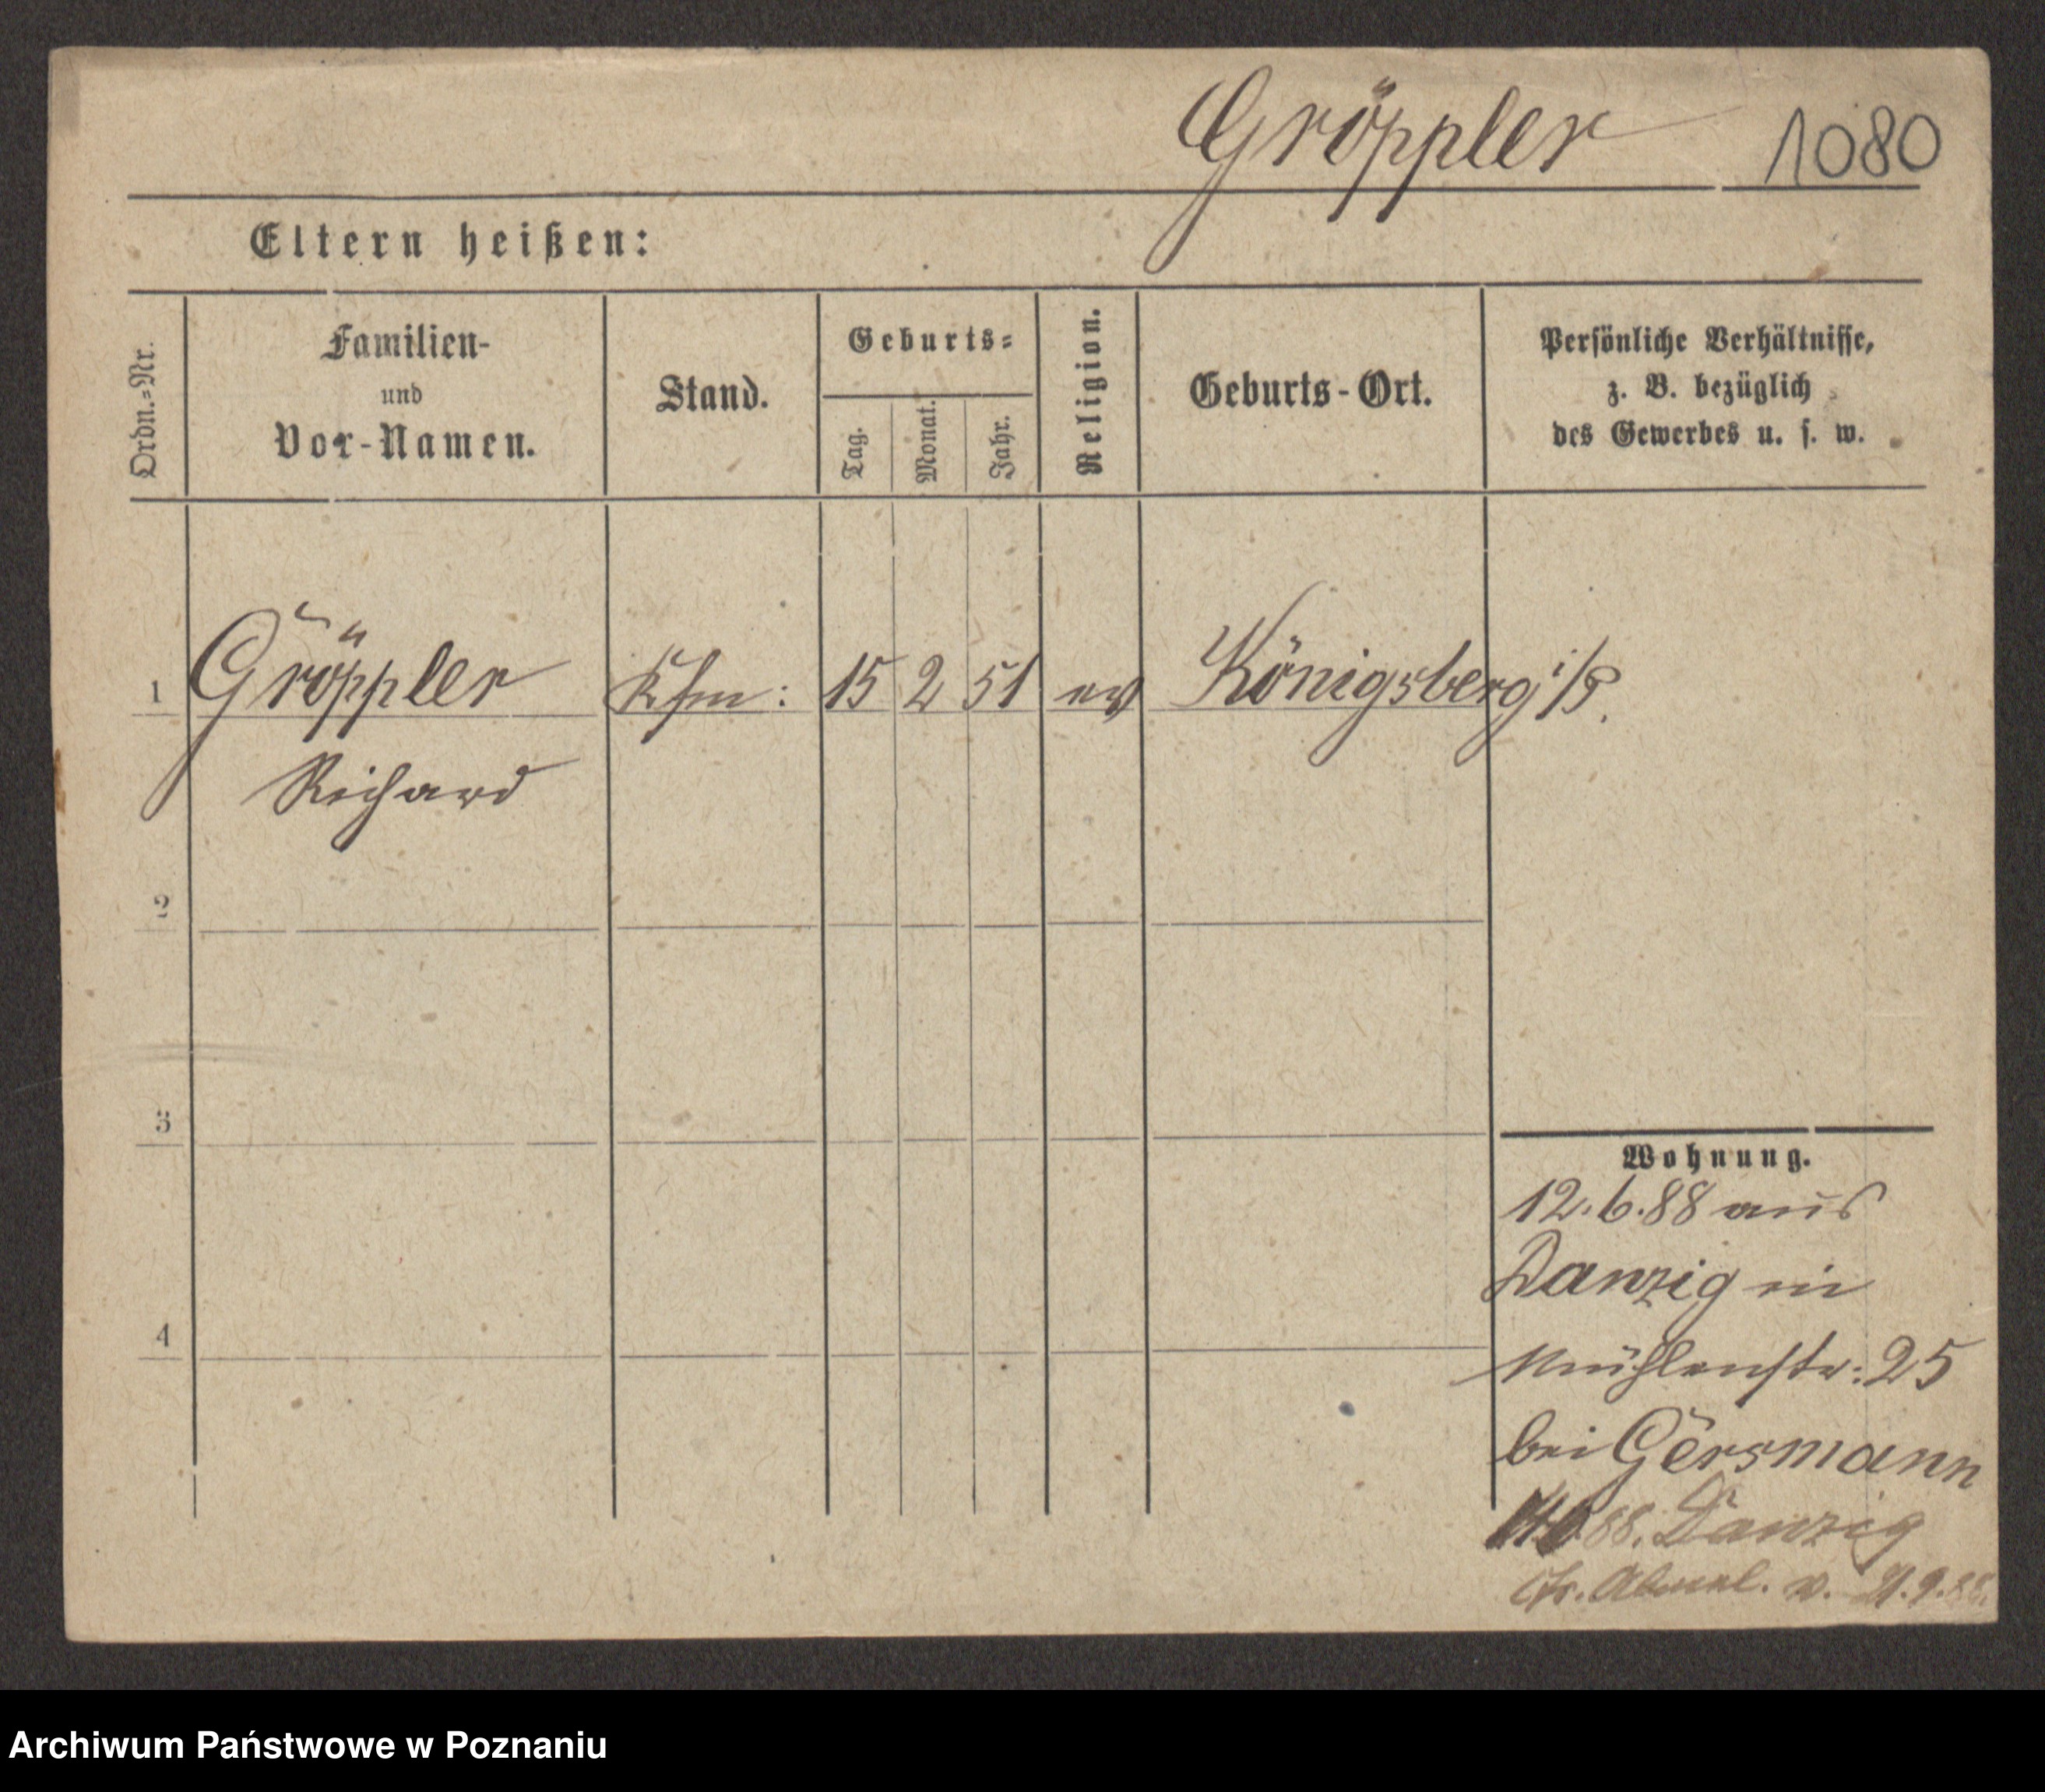 Gröppler 1080
Eltern heißen:
Ordn.=Nr.
Familien-
und
Vor-Namen.
Stand.
Geburts=
Tag.
Monat.
Jahr.
Religion.
Geburts-Ort.
Persönliche Verhältnisse,
z. B. bezüglich
des Gewerbes u. s. w.
1 Gröppler Kfm: 15 2 51 ev Königsberg i/P.
Richard
2
3
4
Wohnung.
12.6.88 aus
Danzig in
Mühlenstr: 25
bei Gersmann
88. Danzig
Abmel. v. 9.88.
Archiwum Państwowe w Poznaniu